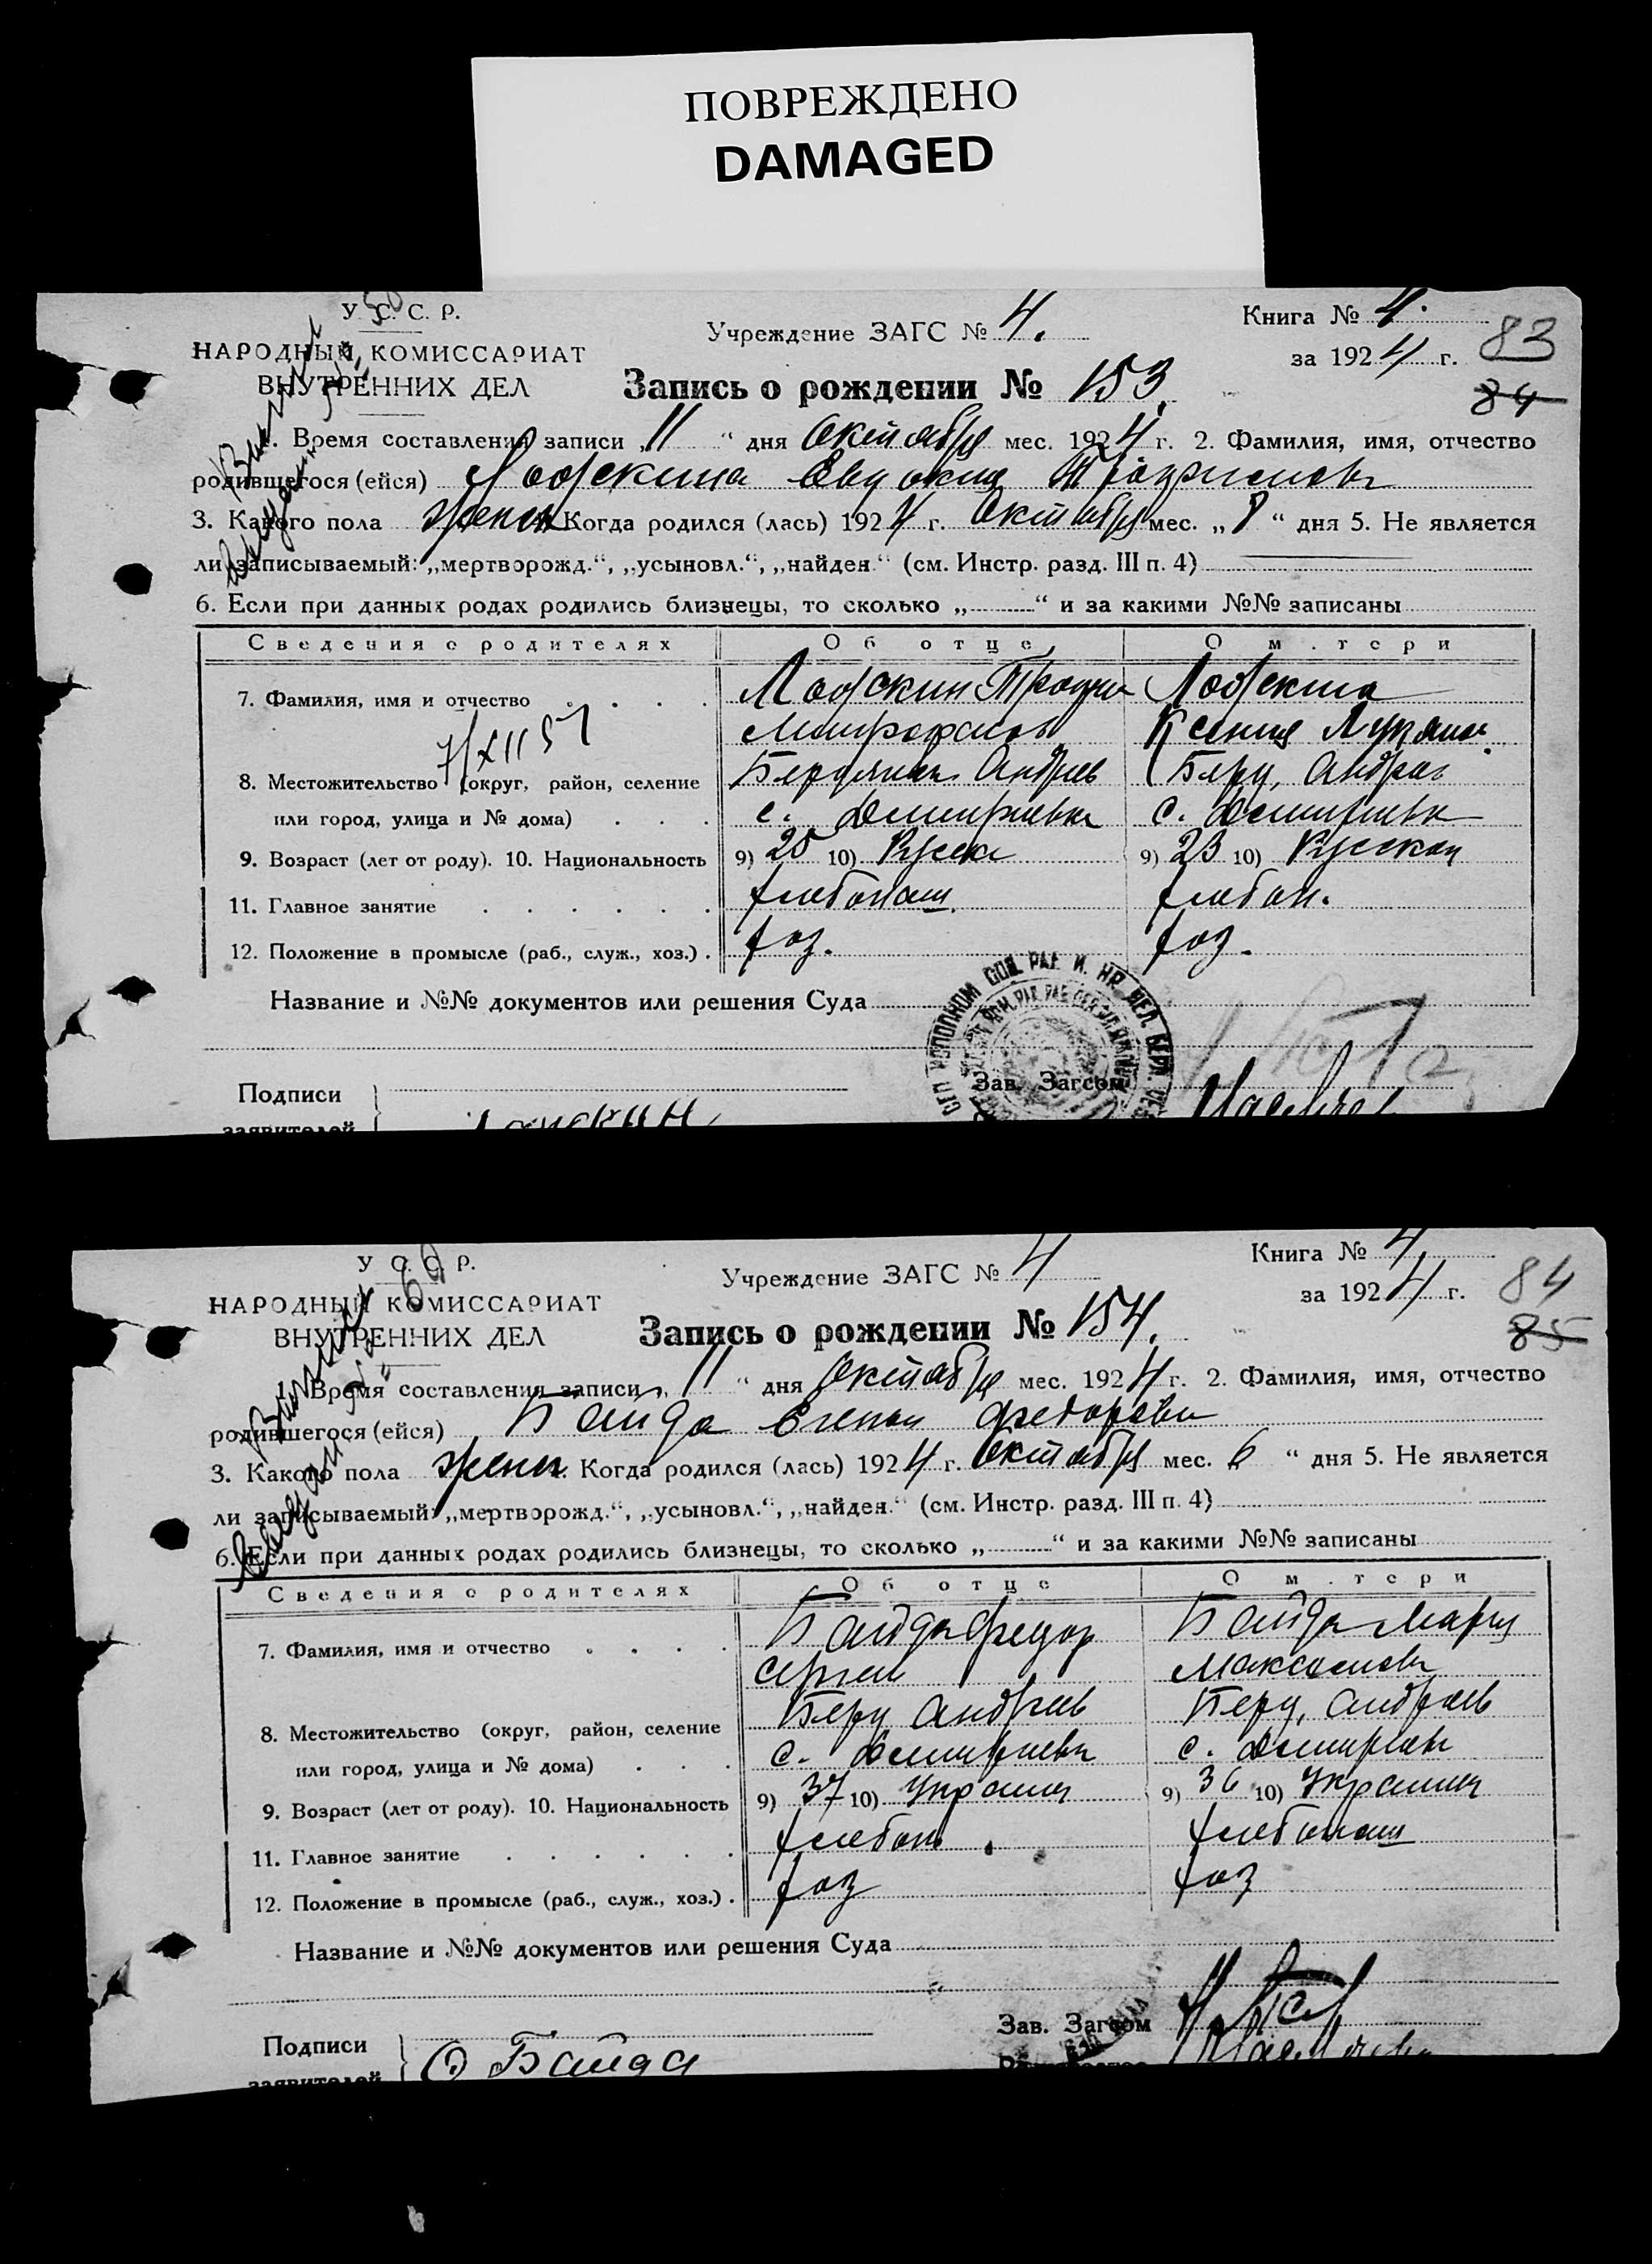 ПОВРЕЖДЕНО
DAMAGED
У. С. С. Р.
НАРОДНЫЙ КОМИССАРИАТ
ВНУТРЕННИХ ДЕЛ
Учреждение ЗАГС № 4.
Книга № 4.
за 1924 г.
83
84
Запись о рождении № 153.
1. Время составления записи „11“ дня Октября мес. 1924 г. 2. Фамилия, имя, отчество
родившегося (ейся) Евдокия
3. Какого пола женск Когда родился (лась) 1924 г. Октября мес. „8“ дня 5. Не является
ли записываемый: „мертворожд.“, „усыновл.“, „найден.“ (см. Инстр. разд. III п. 4)
6. Если при данных родах родились близнецы, то сколько „ “ и за какими №№ записаны
Сведения о родителях Об отце О матери
7. Фамилия, имя и отчество
Ксения
7/XII 51
8. Местожительство (округ, район, селение
или город, улица и № дома)
Бердянск. Андреев
с. Дмитриевка
Берд. Андреев
с. Дмитриевк
9. Возраст (лет от роду). 10. Национальность 9) 25 10) Русск 9) 23 10) Русская
11. Главное занятие хлебопаш. хлебоп.
12. Положение в промысле (раб., служ., хоз.) хоз. хоз.
Название и №№ документов или решения Суда
Зав. Загсом
Подписи
заявителей
У. С. С. Р.
НАРОДНЫЙ КОМИССАРИАТ
ВНУТРЕННИХ ДЕЛ
Учреждение ЗАГС № 4
Книга № 4.
за 1924 г.
84
85
Запись о рождении № 154.
1. Время составления записи „11“ дня Октября мес. 1924 г. 2. Фамилия, имя, отчество
родившегося (ейся) Байда Елена Федоровн
3. Какого пола женск. Когда родился (лась) 1924 г. Октября мес. 6 “ дня 5. Не является
ли записываемый: „мертворожд.“, „усыновл.“, „найден.“ (см. Инстр. разд. III п. 4)
6. Если при данных родах родились близнецы, то сколько „ “ и за какими №№ записаны
Сведения о родителях Об отце О матери
7. Фамилия, имя и отчество Байда Федор Байда Мария
Сергеев Максимовн
8. Местожительство (округ, район, селение Берд Андреев Берд. Андреев
или город, улица и № дома) с. Дмитриевк с. Дмитриевк
9. Возраст (лет от роду). 10. Национальность 9) 37 10) Украин 9) 36 10) Украин
11. Главное занятие хлебоп. хлебопаш
12. Положение в промысле (раб., служ., хоз.) хоз хоз
Название и №№ документов или решения Суда
Зав. Загсом
Подписи
заявителей
Ф Байда